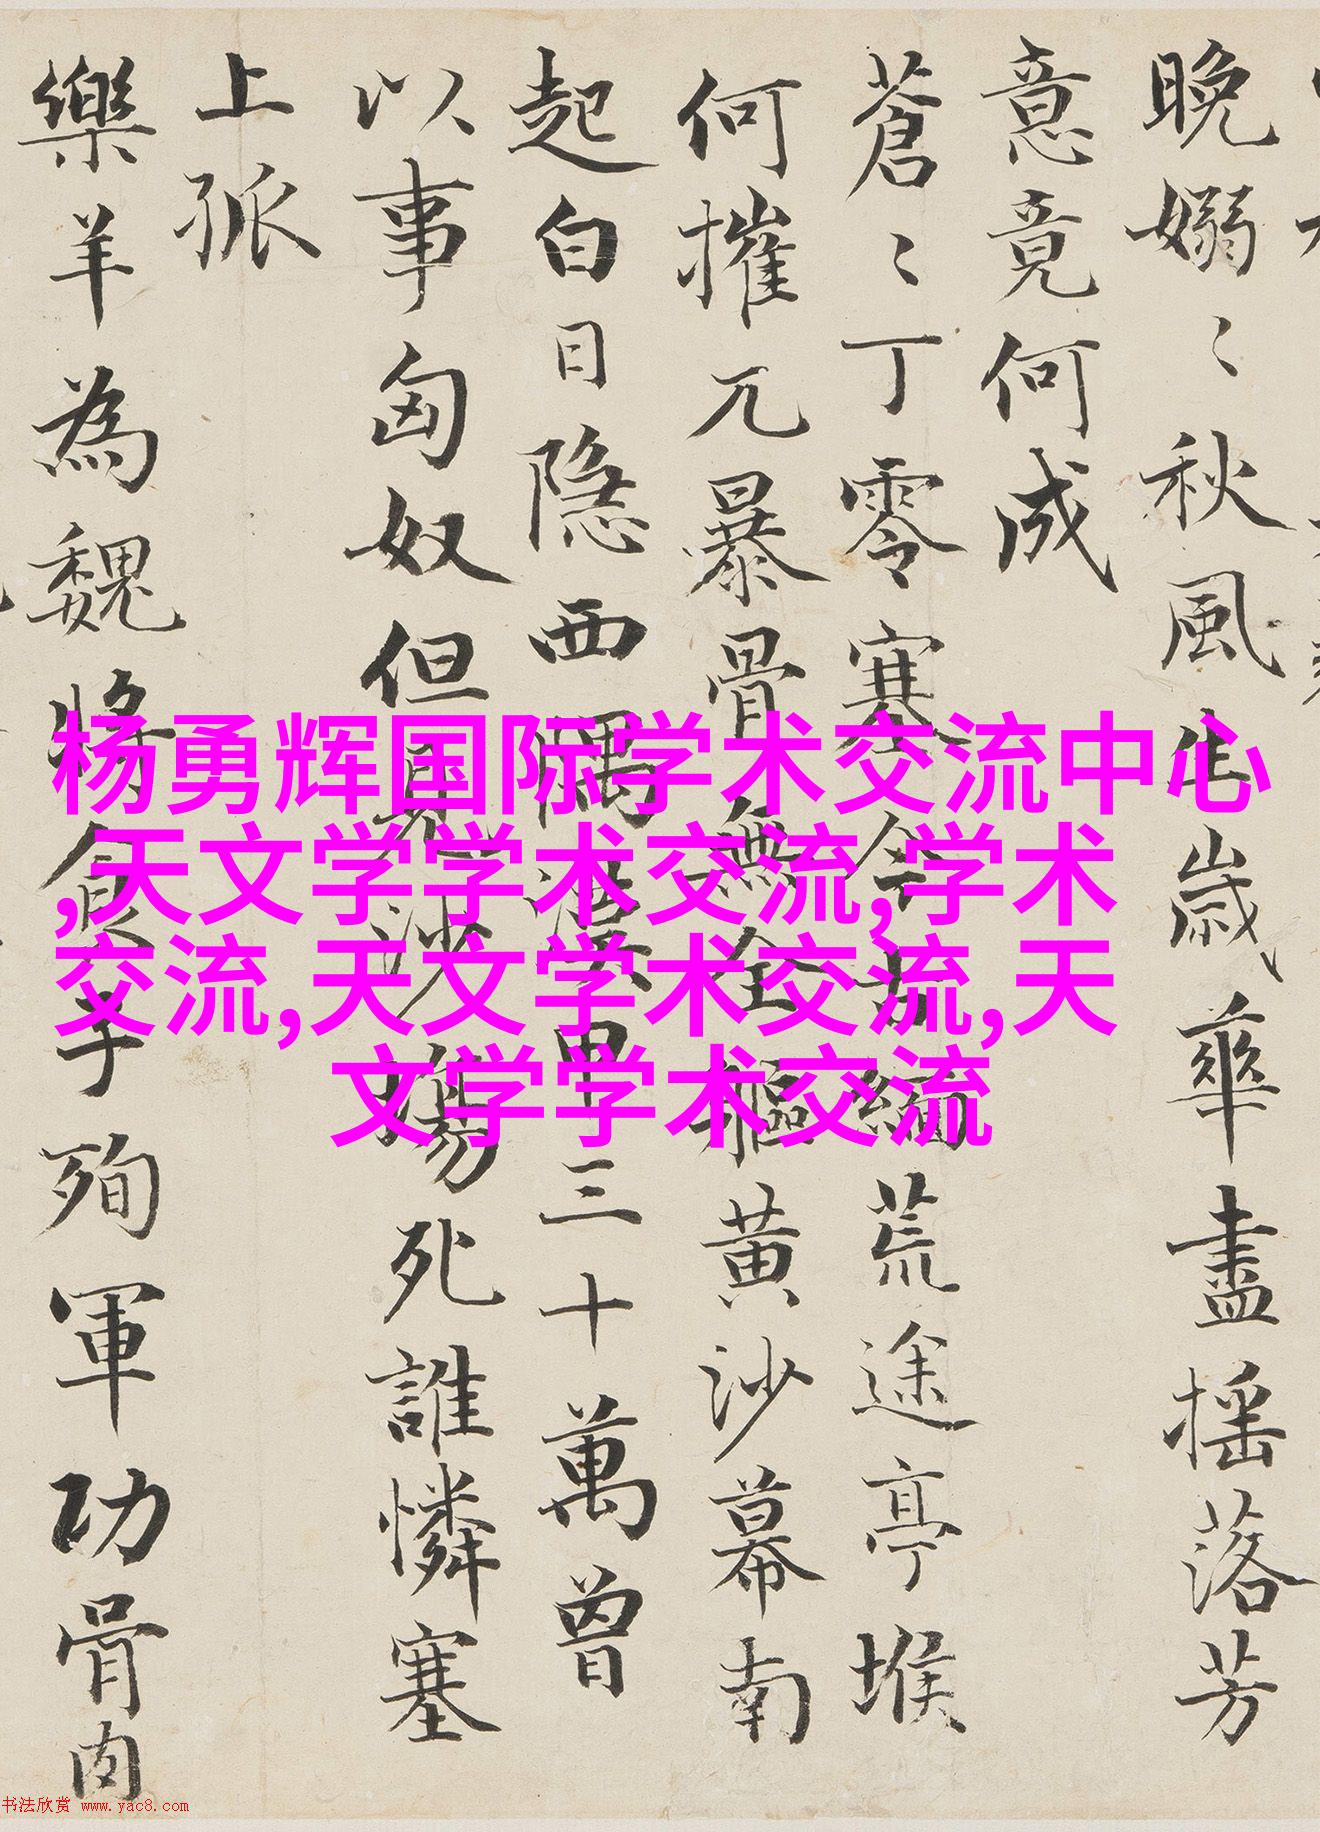 晚嫋〻秋風生歲華盡摇落芳
意竟何成
蒼〻丁零塞今古緬荒途亭堠
何摧兀暴骨無全軀黄沙幕南
起白日隐西隅漢甲三十萬曾
以事匈奴但見沙塲死誰憐塞
上孤
樂羊為魏將食子殉軍功骨肉
杨勇辉国际学术交流中心
,天文学学术交流,学术
交流,天文学术交流,天
文学学术交流
书法欣赏 www.yac8.com